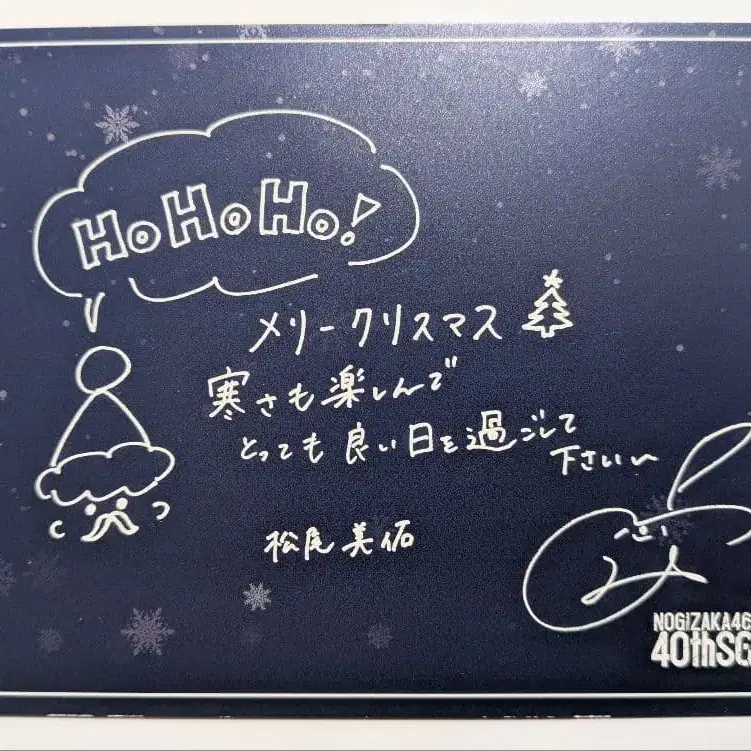 HoHoHo!
メリークリスマス
寒さも楽しんで
とっても良い日を過ごして
下さい〜
松尾美佑
NOGIZAKA46
40thSG